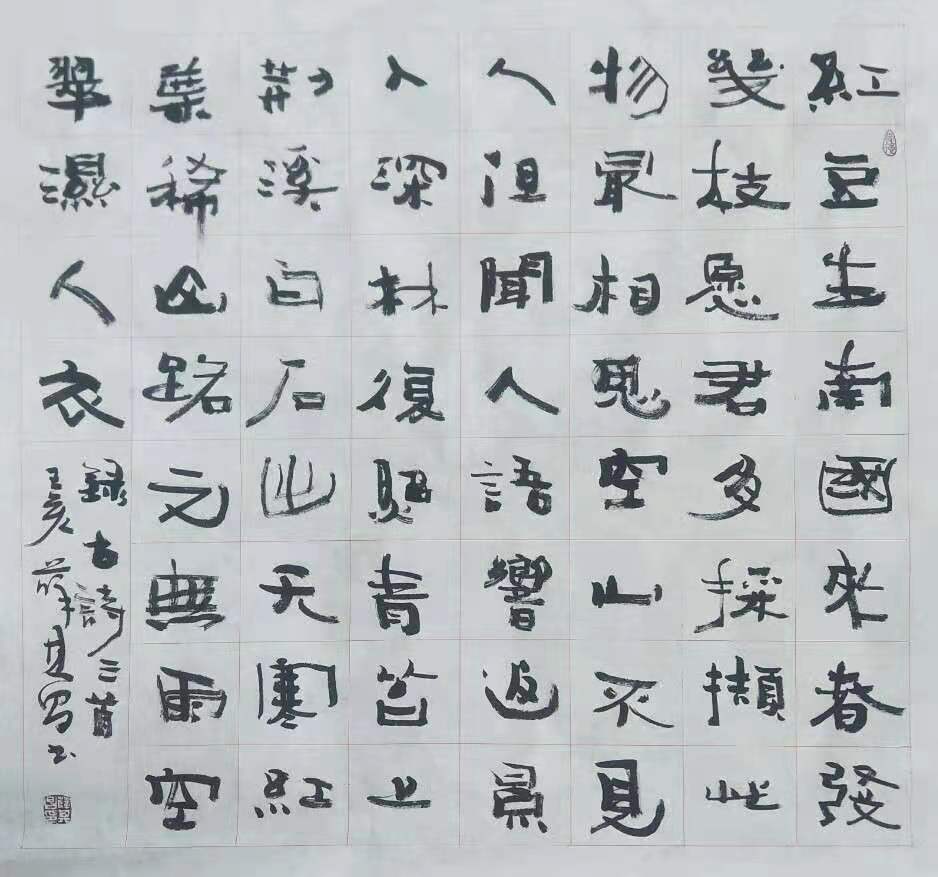 紅豆生南國來春發
幾枝愿君多採擷此
物最相思空山不見
人但聞人語響返景
入深林復照青苔上
荆溪白石出天寒紅
葉稀山路元無雨空
翠濕人衣
錄古詩三首